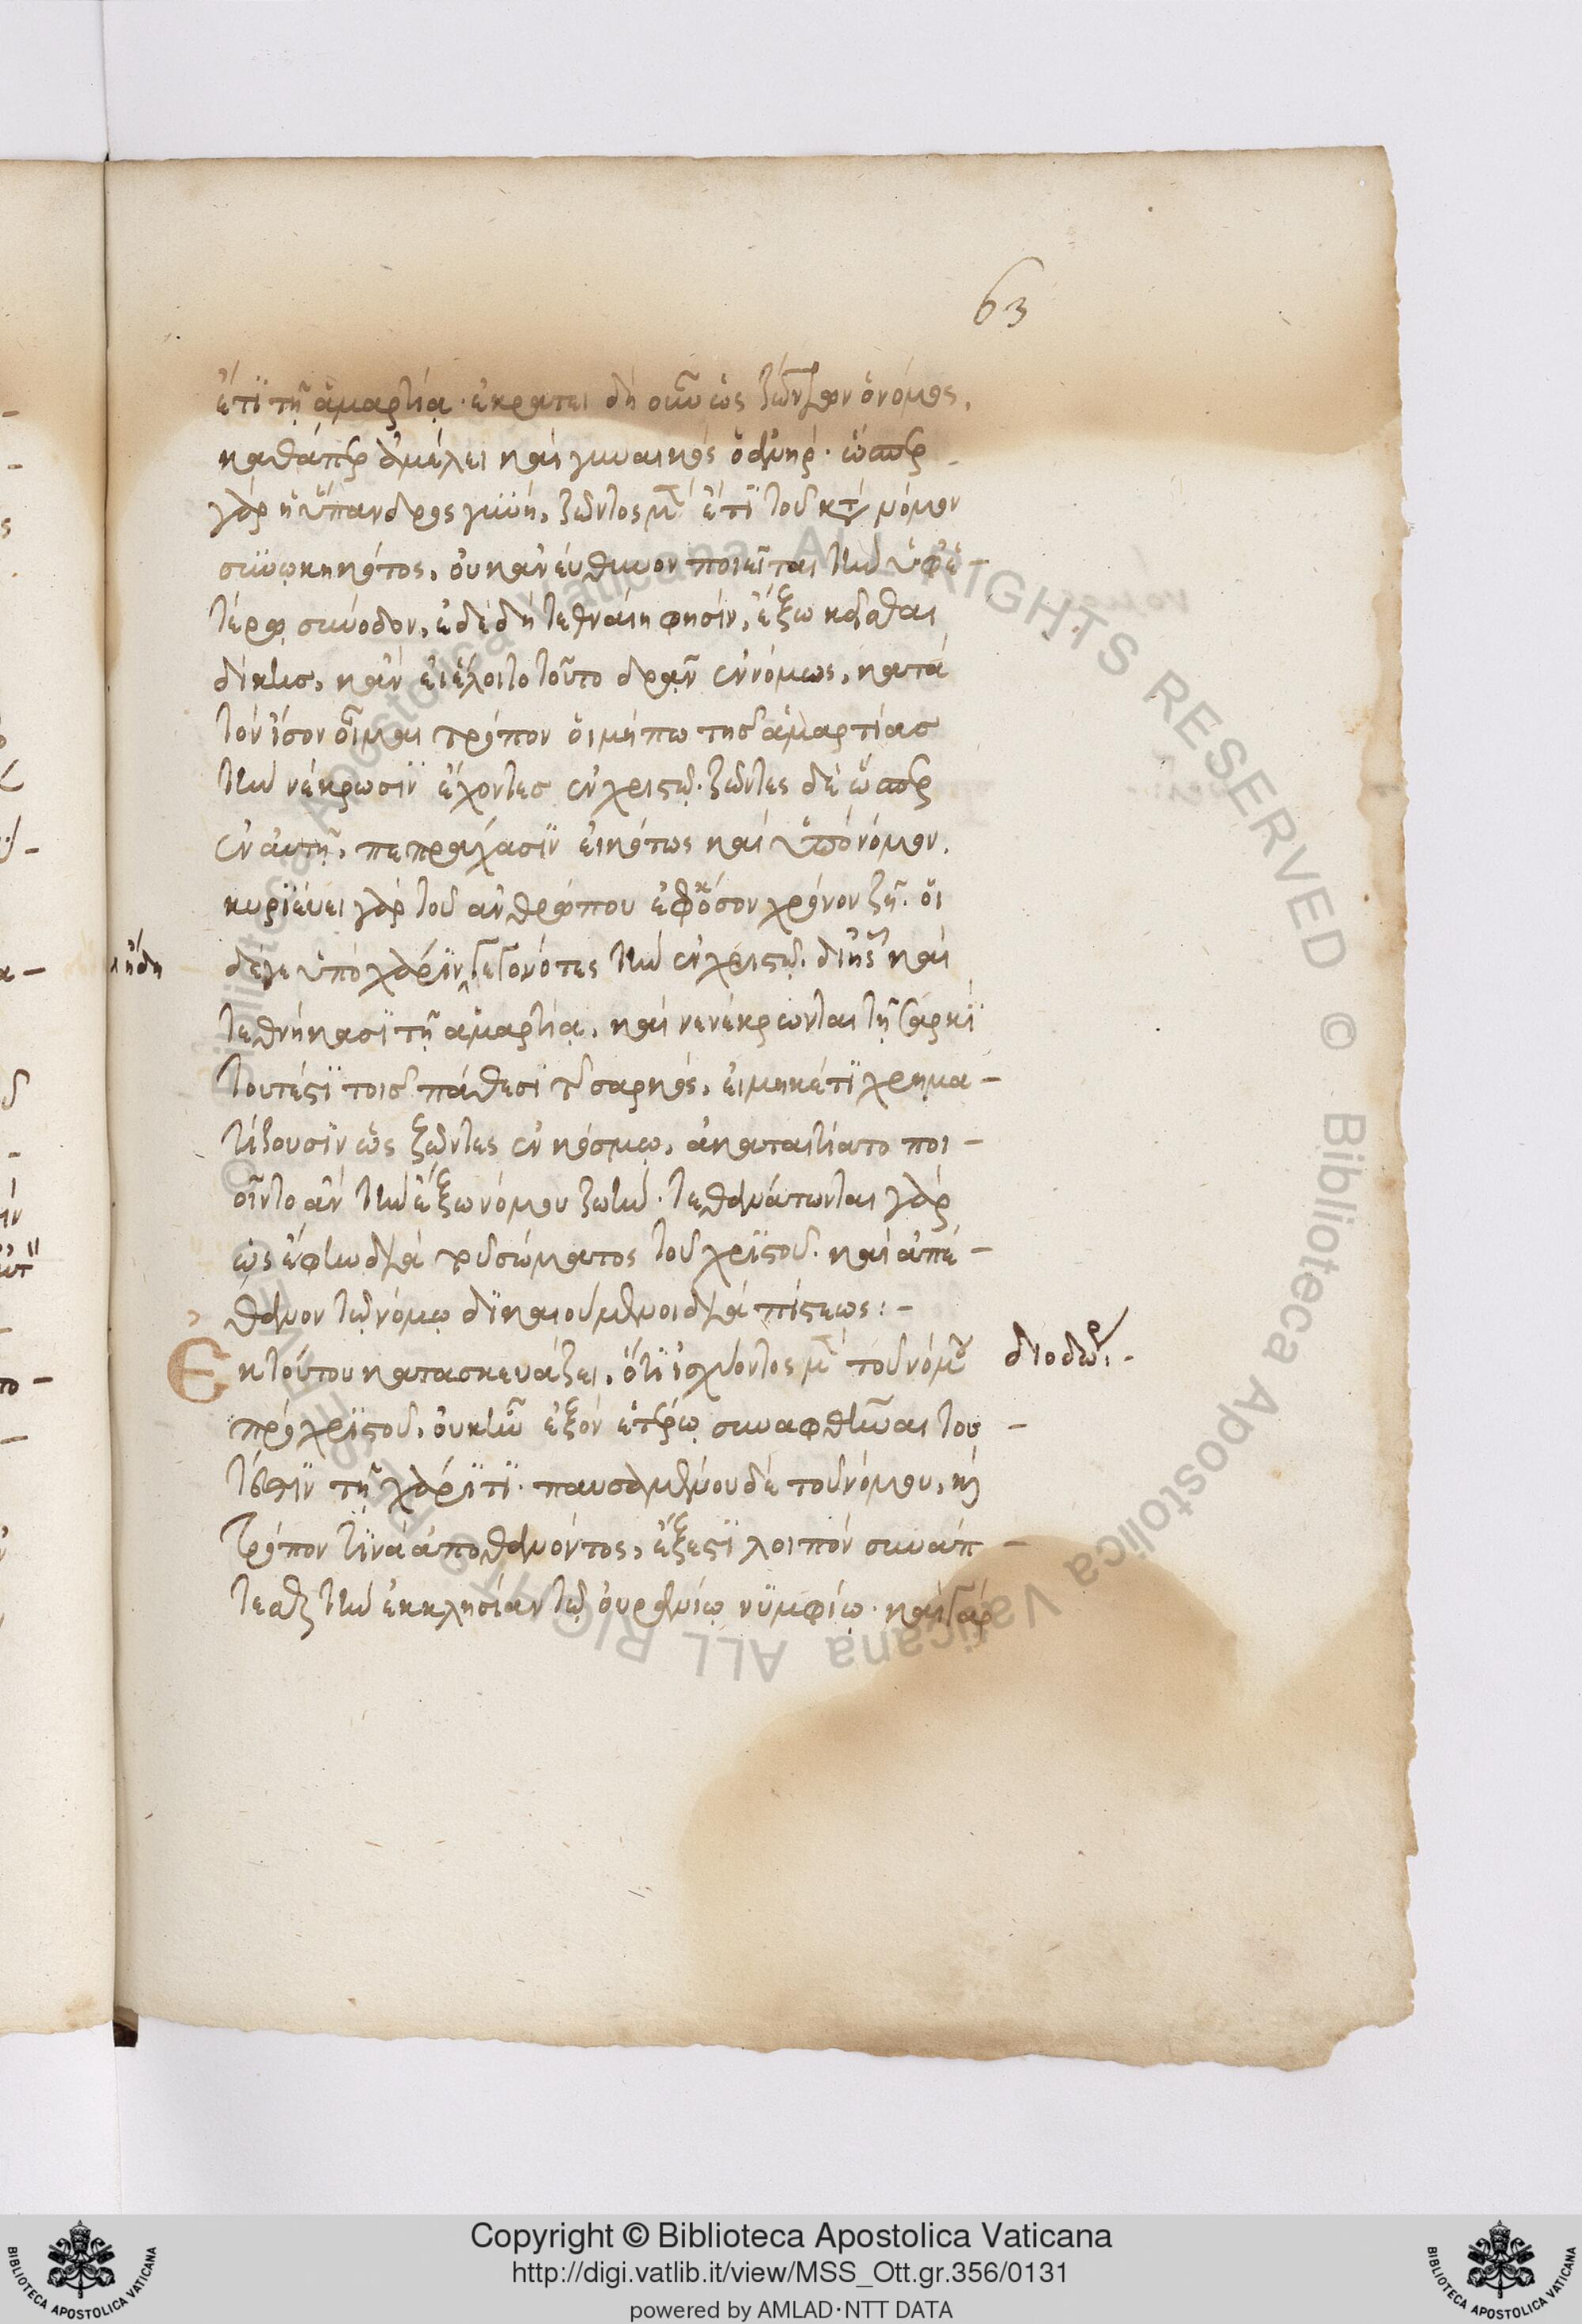 63
ἔτι τῇ ἁμαρτίᾳ. ἐκράτει δὴ οὖν ὡς ζώντων ὁ νόμος,
καθάπερ ἀμέλει καὶ γυναικὸς ὁ ἀνήρ. ὥσπερ
γὰρ ἡ ὕπανδρος γυνὴ, ζῶντος μὲν ἔτι τοῦ κατὰ νόμον
συνῳκηκότος, οὐκ ἀνεύθυνον ποιεῖται τὴν ὑφ' ἑ-
τέρῳ σύνοδον, εἰ δὲ δὴ τεθναίη φησὶν, ἔξω κείσεται
δίκης, κἂν εἰ ἕλοιτο τοῦτο δρᾶν ἐννόμως, κατὰ
τὸν ἴσον οἶμαι τρόπον οἱ μήπω τῆς ἁμαρτίας
τὴν νέκρωσιν ἔχοντες ἐν χριστῷ. ζῶντες δὲ ὥσπερ
ἐν αὐτῇ, πεπράχασιν εἰκότως καὶ ὑπὸ νόμον.
κυριεύει γὰρ τοῦ ἀνθρώπου ἐφ' ὅσον χρόνον ζῇ. οἱ
δέ γε ὑπὸ χάριν γεγονότες τὴν ἐν χριστῷ. δι' ἧς καὶ
ἤδη
τεθνήκασι τῇ ἁμαρτίᾳ. καὶ νενέκρωνται τῇ σαρκὶ
τουτέστι τοῖς πάθεσι τῆς σαρκός, εἰ μηκέτι χρημα-
τίζουσιν ὡς ζῶντες ἐν κόσμῳ, ἀκαταιτίατο ποι-
οῖντο ἂν τὴν ἔξω νόμου ζωήν. τεθανάτωνται γὰρ
ὡς ἔφην διὰ τοῦ σώματος τοῦ χριστοῦ. καὶ ἀπέ-
θανον τῷ νόμῳ δικαιούμενοι διὰ πίστεως:-
Ἐκ τούτου κατασκευάζει, ὅτι ἰσχύοντος μὲν τοῦ νόμου
διοδώρ.-
πρὸ χριστοῦ, οὐκ ἦν ἐξὸν ἑτέρῳ συναφθῆναι του-
τέστιν τῇ χάριτι. παυσαμένου δὲ τοῦ νόμου, καὶ
τρόπον τινὰ ἀποθανόντος, ἔξεστι λοιπὸν συνάπ-
τεσθαι τὴν ἐκκλησίαν τῷ οὐρανίῳ νυμφίῳ. καὶ γὰρ
Copyright © Biblioteca Apostolica Vaticana
http://digi.vatlib.it/view/MSS_Ott.gr.356/0131
powered by AMLAD·NTT DATA